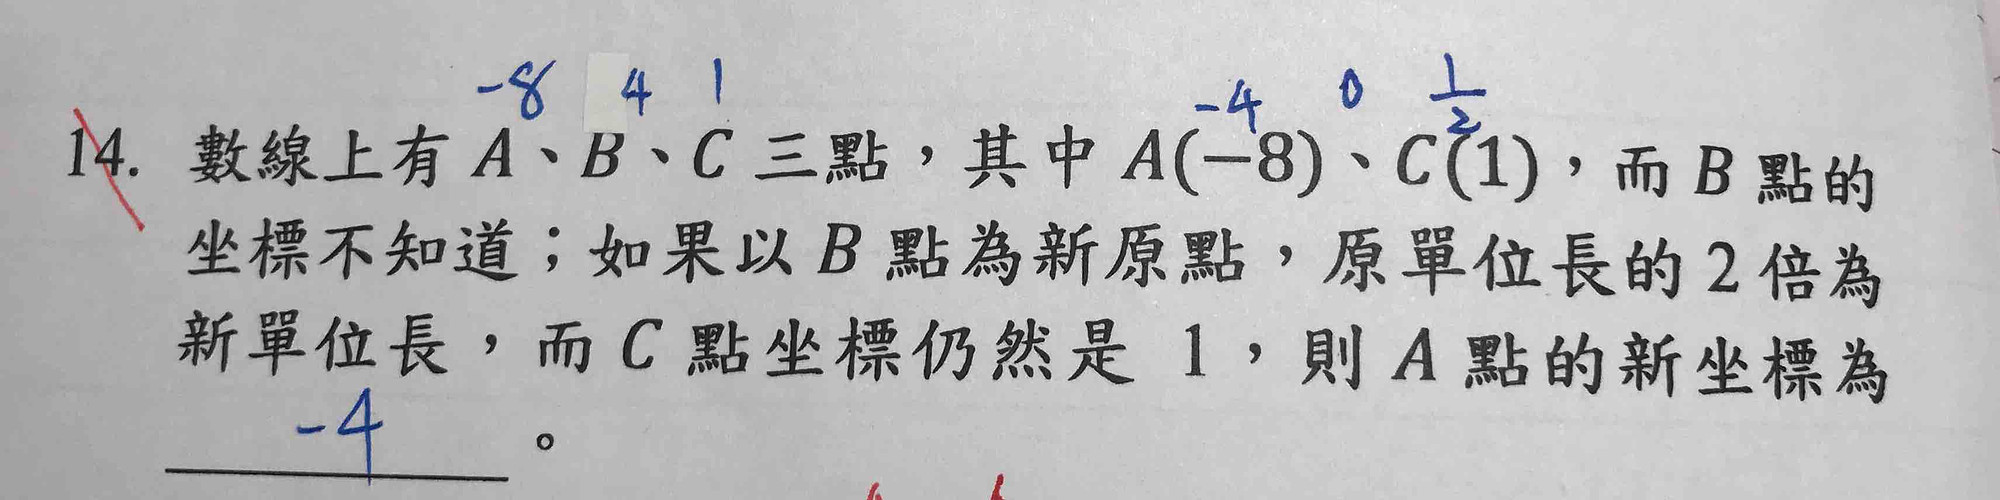 -8 4 1 -4 0 1/2
14. 數線上有 A、B、C 三點，其中 A(-8)、C(1)，而 B 點的
坐標不知道；如果以 B 點為新原點，原單位長的 2 倍為
新單位長，而 C 點坐標仍然是 1，則 A 點的新坐標為
-4 。